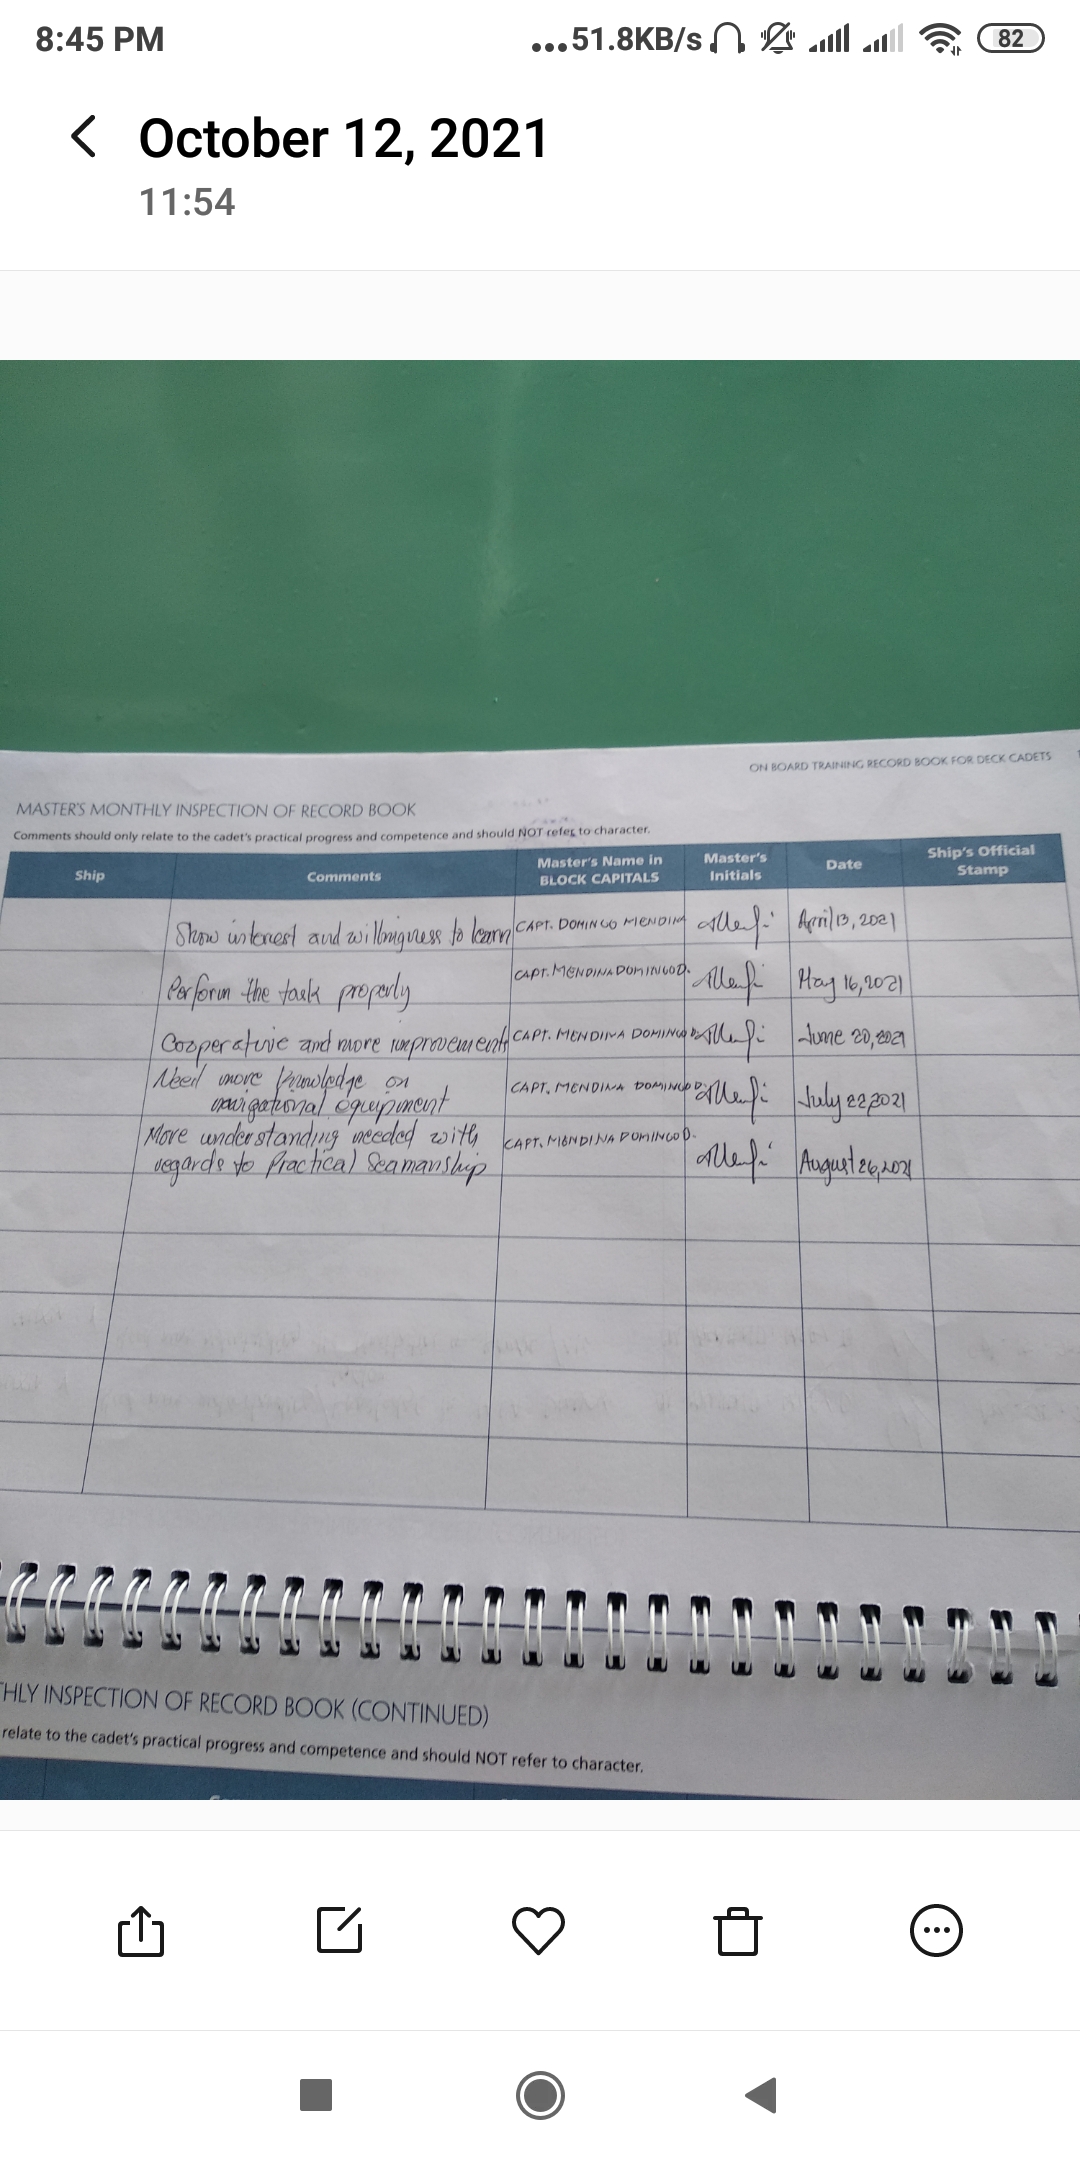 8:45 PM
...51.8KB/s
82
October 12, 2021
11:54
ON BOARD TRAINING RECORD BOOK FOR DECK CADETS
MASTER'S MONTHLY INSPECTION OF RECORD BOOK
Comments should only relate to the cadet's practical progress and competence and should NOT refer to character.
Ship Comments Master's Name in BLOCK CAPITALS Master's Initials Date Ship's Official Stamp
Show interest and willingness to learn CAPT. DOMINGO MENDINA April 13, 2021
Perform the task properly CAPT. MENDINA DOMINGO D. May 16, 2021
Cooperative and more improvement CAPT. MENDINA DOMINGO D. June 20, 2021
Need more knowledge on
navigational equipment CAPT. MENDINA DOMINGO D. July 22, 2021
More understanding needed with
regards to Practical Seamanship CAPT. MENDINA DOMINGO D. August 26, 2021
HLY INSPECTION OF RECORD BOOK (CONTINUED)
relate to the cadet's practical progress and competence and should NOT refer to character.